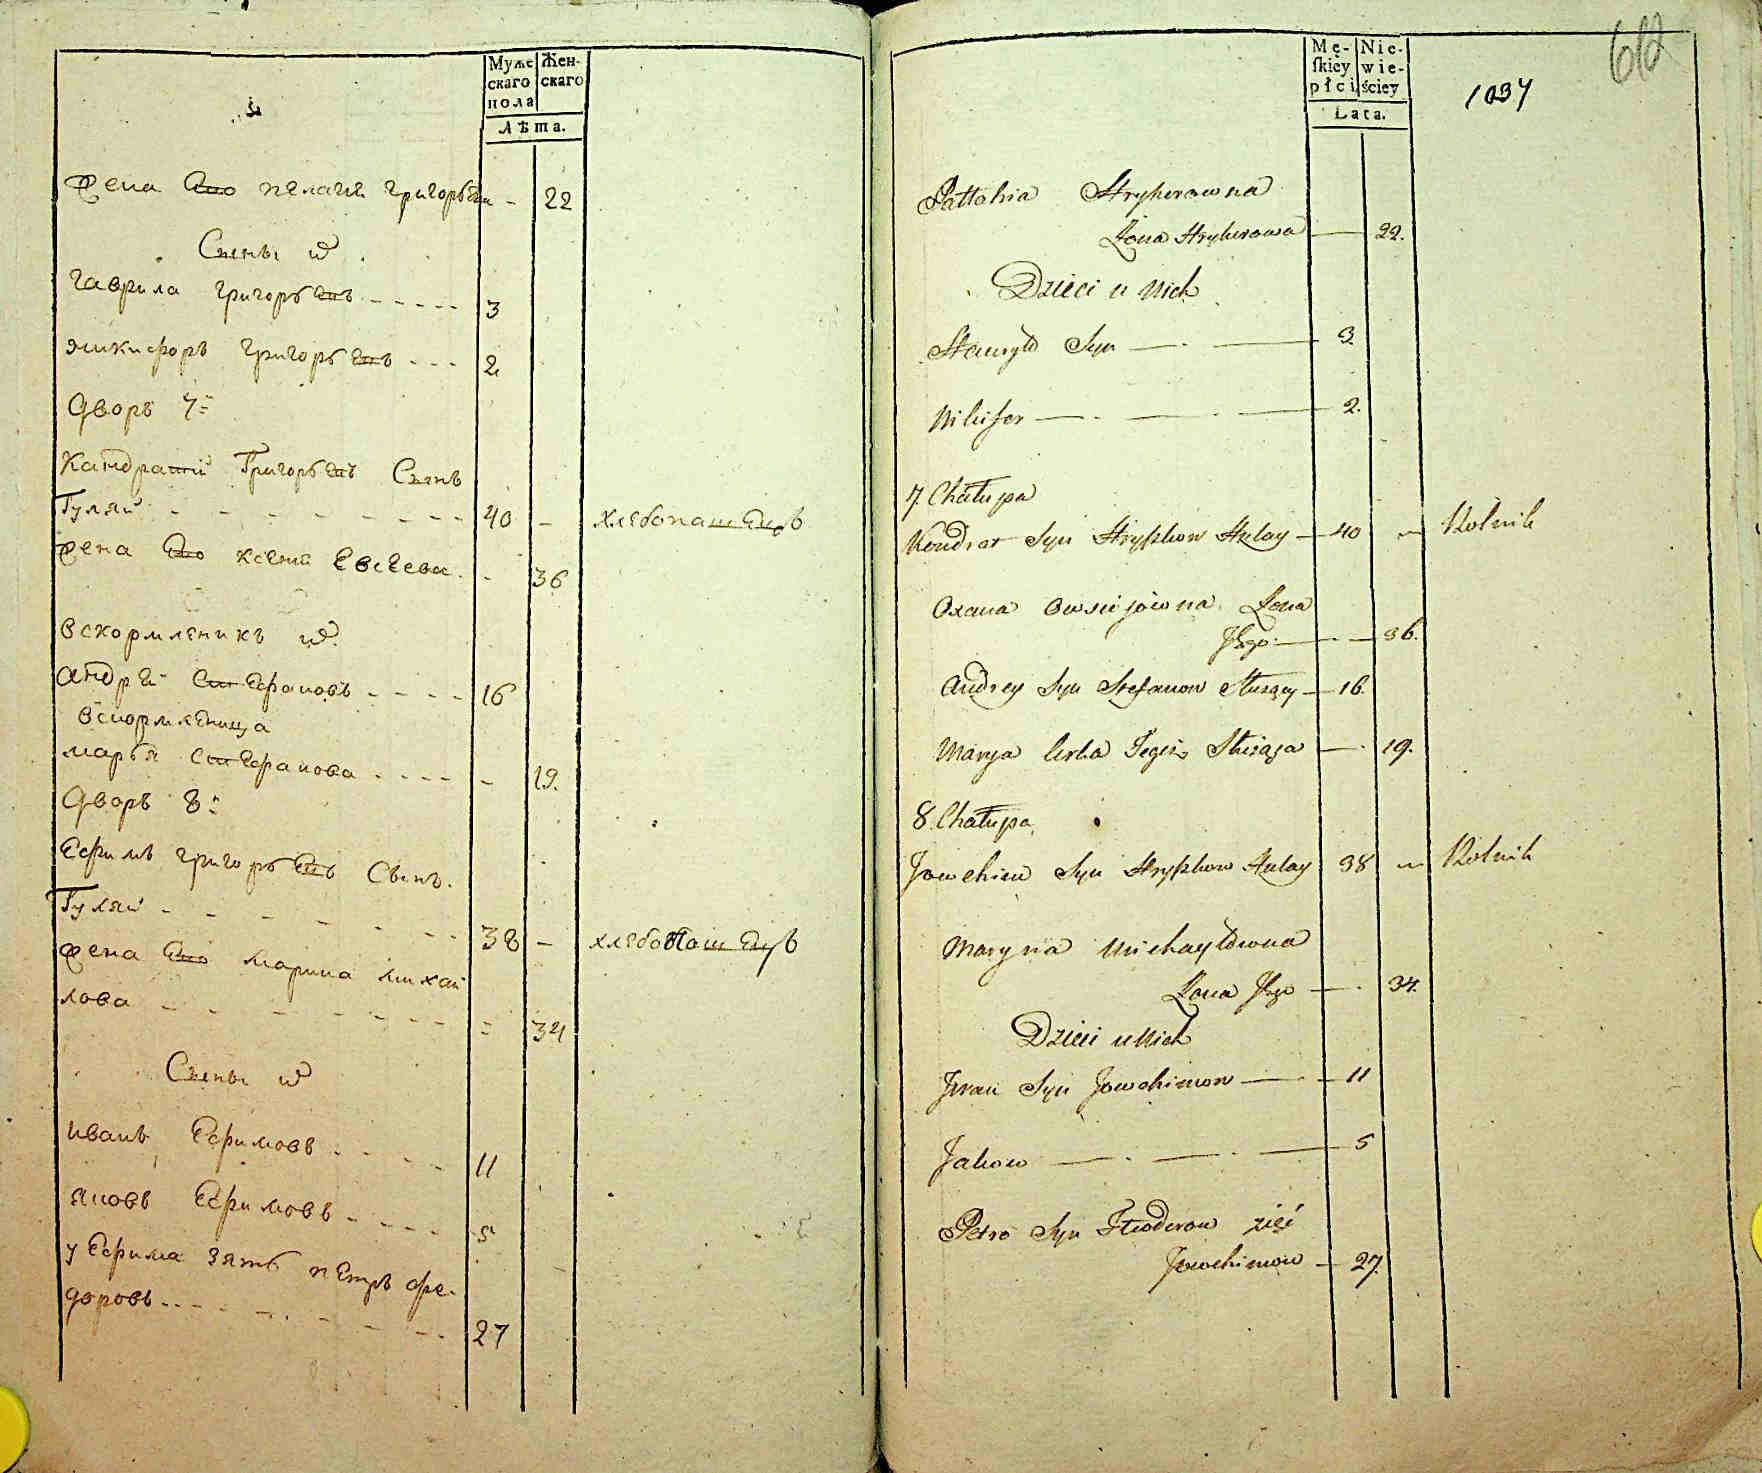 Муже
скаго
пола
Жен-
скаго
Лѣта.
жена Его пелагея григорьева - 22
Сыны
гаврила григорьевъ - - - - - 3
никифоръ григорьевъ - - - 2
дворъ 7й
Кандратий Григорьевъ Сынъ
Гуляй - - - - - - - - 40 - хлебопашецъ
жена Его ксения Евсеева - - 36
вскормленикъ
андрей Стефановъ - - - - 16
вскормленица
марья Стефанова - - - - - 19.
дворъ 8й
Ефимъ григорьевъ Сынъ
Гуляй - - - - - - 38 - хлебопашецъ
жена Его марина михаи
лова - - - - - - - - 34
Сыны
иванъ Ефимовъ - - - - 11
яковъ Ефимовъ - - - - 5
у Ефима зять петръ фе-
доровъ - - - - - - - 27
Mę-
skiey
płci
Nie-
wie-
ściey
Lata.
1037
Hryhorowna
Żona Hryhorowa — 22.
Dzieci u Nich
Hawryło Syn — . — 3
Nikifor — . — . — 2.
7. Chałupa
Kondrat Syn Hryhkow Hulay — 40 — Rolnik
Oxana Owsiejowna Żona
Jego — . — 36.
Andrey Syn Stefanow Służący — 16
Marya Corka Tegoż Służąca — . 19.
8. Chałupa
Jowchim Syn Hryhkow Hulay 38 — Rolnik
Maryna Michayłowna
Żona Jego — . 34.
Dzieci u Nich
Jwan Syn Jowchimow — — 11
Jakow — . — . — 5
Petro Syn Fteodorow zięć
Jowchimow — 27.